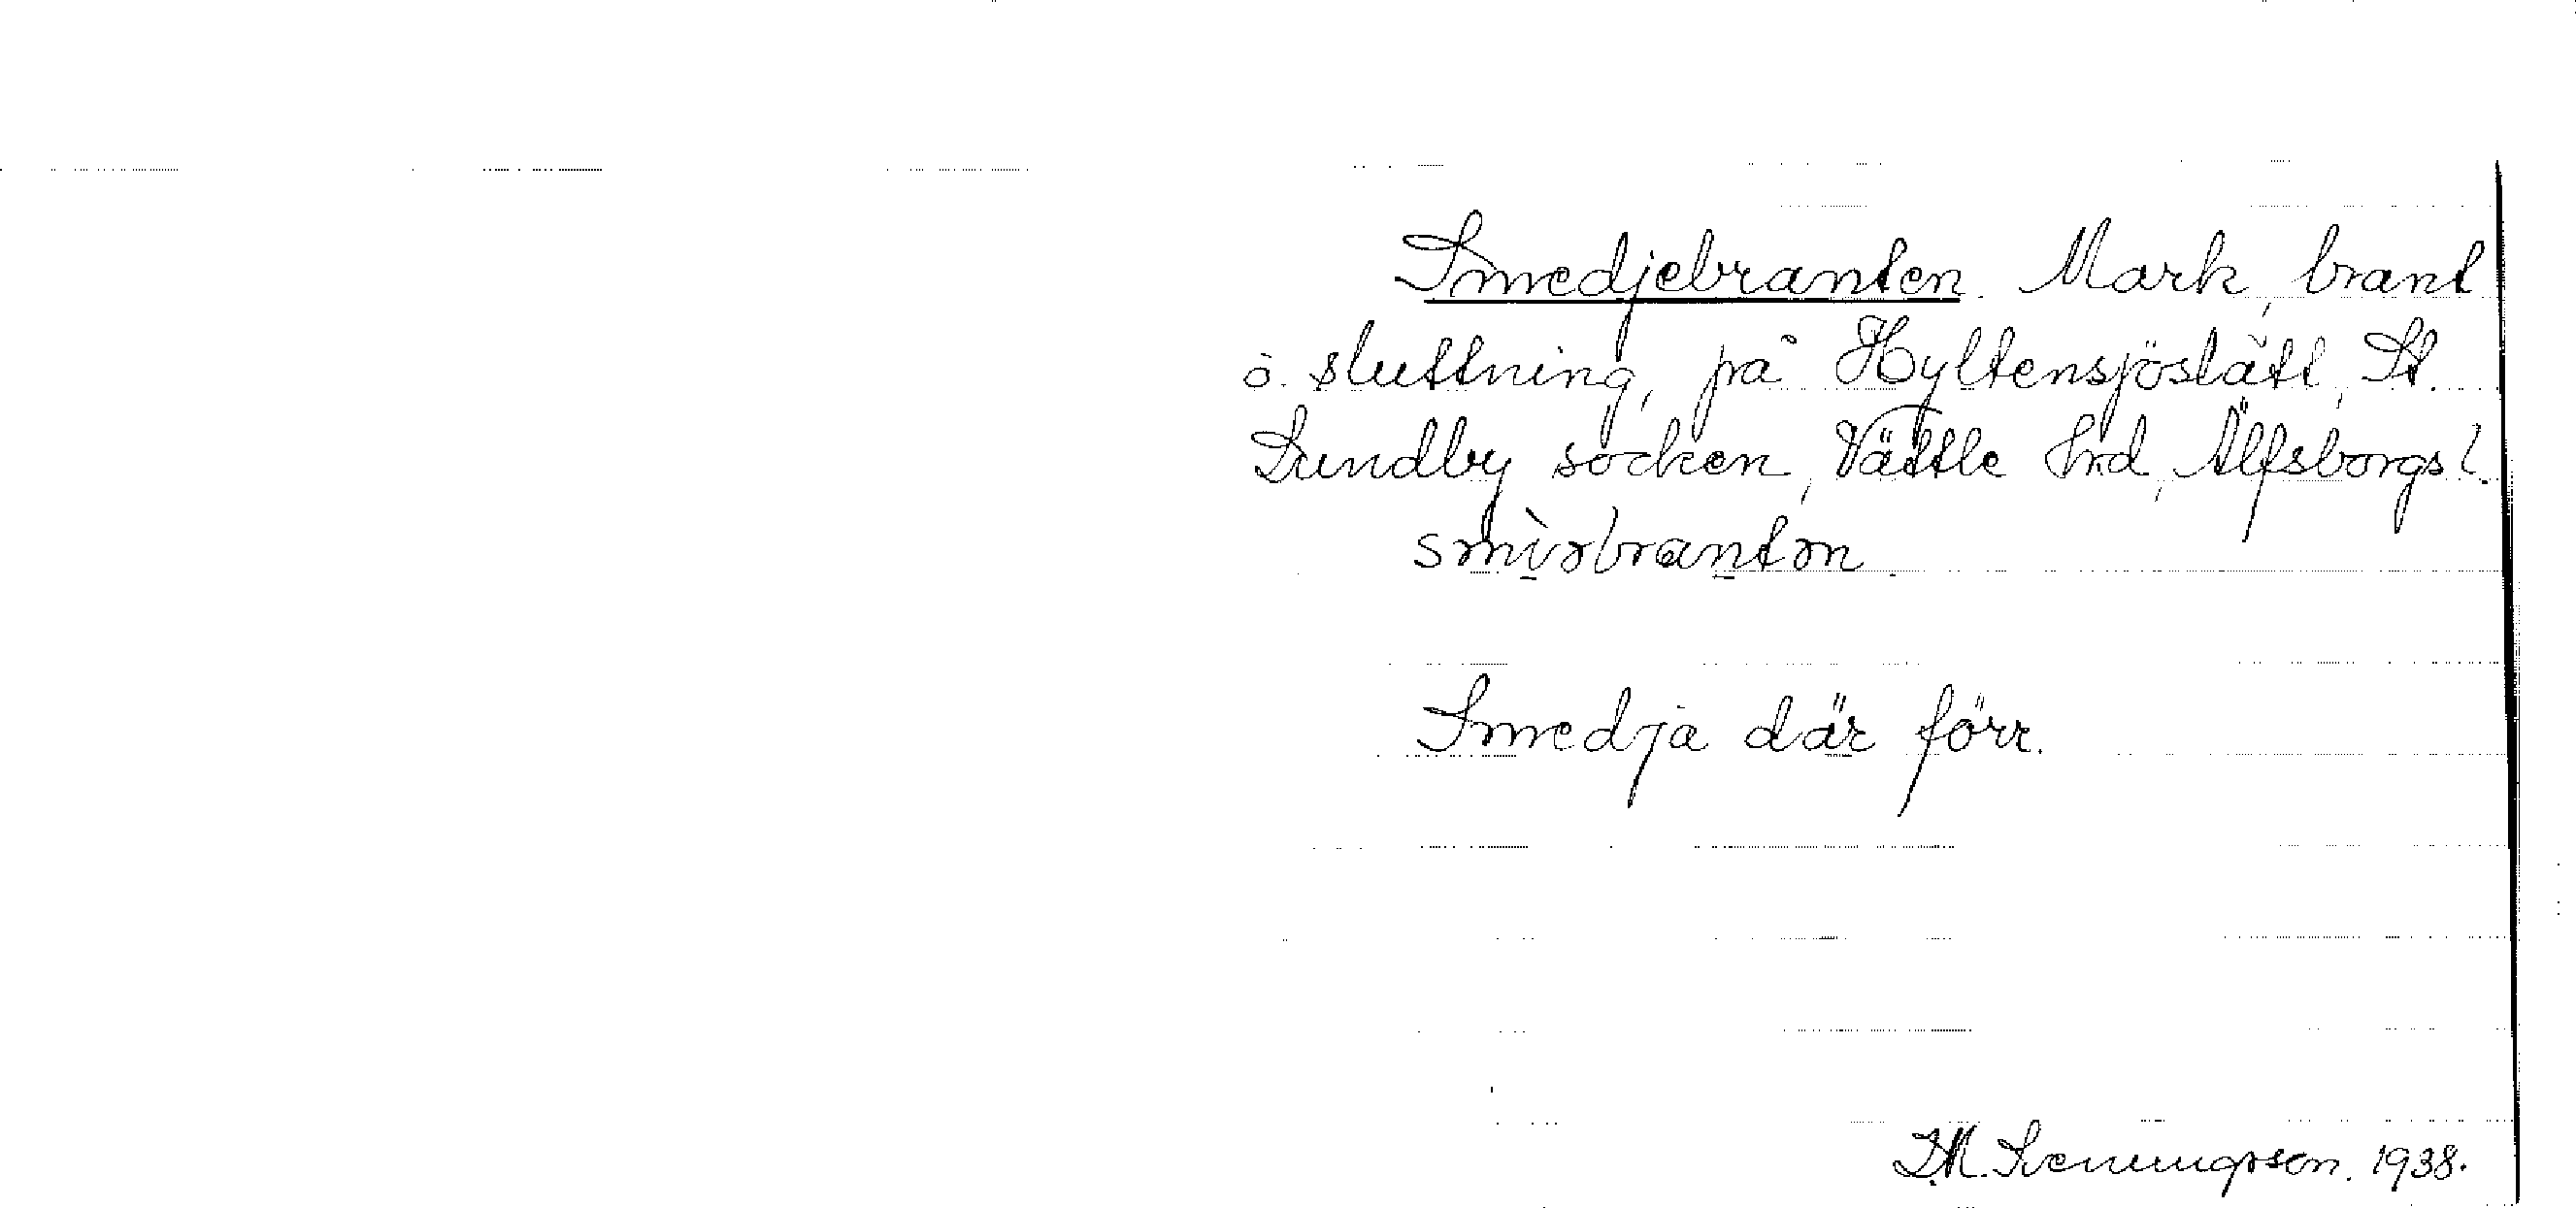 Smedjebranten. Mark, brant
ö. sluttning, på Hyltensjöslätt, St.
Lundby socken, Vättle hrd, Älfsborgs l.
smìǝbrantǝn.
Smedja där förr.
I.M. Sveningsson. 1938.